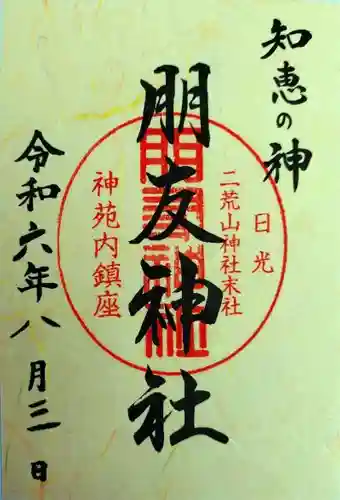 知恵の神
日光
二荒山神社末社
朋友神社
神苑内鎮座
令和六年八月三日